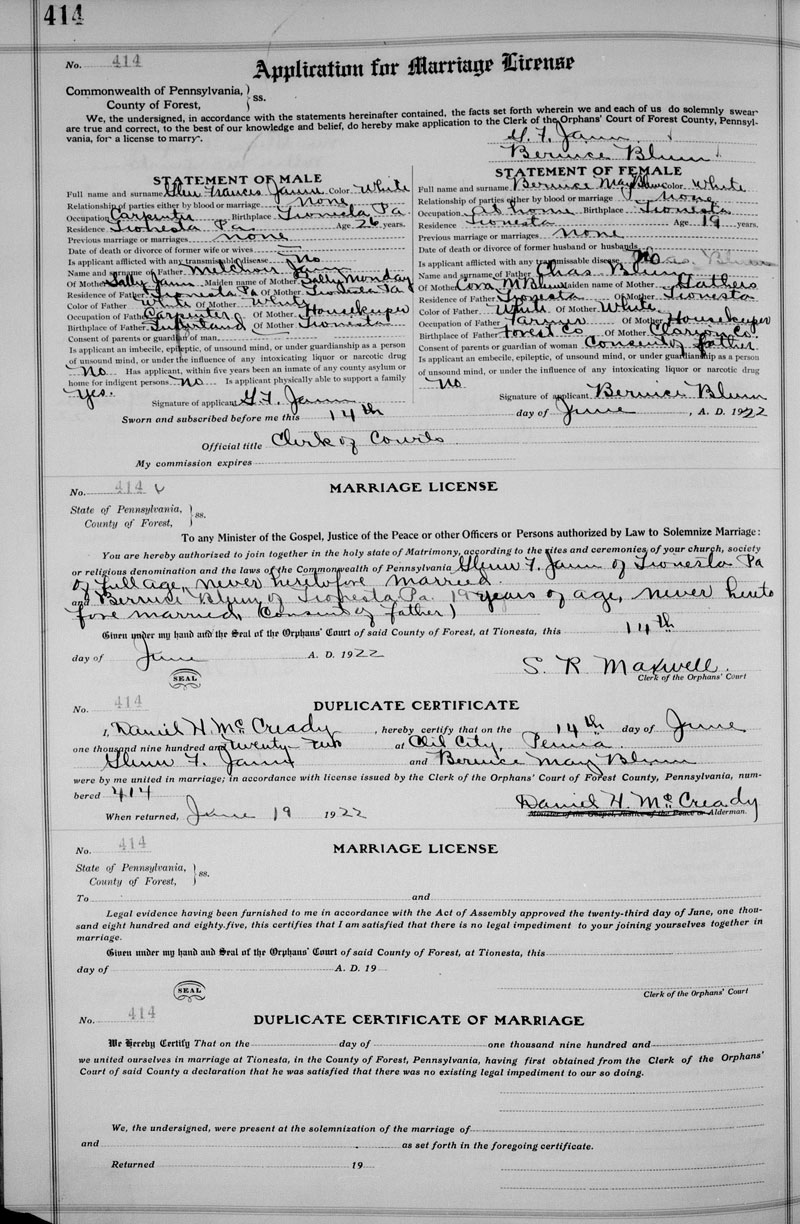 414
No. 414
Application for Marriage License
Commonwealth of Pennsylvania, } ss.
County of Forest,
We, the undersigned, in accordance with the statements hereinafter contained, the facts set forth wherein we and each of us do solemnly swear
are true and correct, to the best of our knowledge and belief, do hereby make application to the Clerk of the Orphans' Court of Forest County, Pennsyl-
vania, for a license to marry.
G. F. Jann
Bernice Blum
STATEMENT OF MALE
Full name and surname Glen Francis Jann Color White
Relationship of parties either by blood or marriage None
Occupation Carpenter Birthplace Tionesta Pa
Residence Tionesta Pa Age 26 years.
Previous marriage or marriages none
Date of death or divorce of former wife or wives
Is applicant afflicted with any transmissable disease No
Name and surname of Father Melchoir Jann
Of Mother Sally Jann Maiden name of Mother Sally Monday
Residence of Father Tionesta Pa Of Mother Tionesta Pa
Color of Father White Of Mother White
Occupation of Father Carpenter Of Mother Housekeeper
Birthplace of Father Of Mother Tionesta
Consent of parents or guardian of man
Is applicant an imbecile, epileptic, of unsound mind, or under guardianship as a person
of unsound mind, or under the influence of any intoxicating liquor or narcotic drug
No Has applicant, within five years been an inmate of any county asylum or
home for indigent persons No Is applicant physically able to support a family
Yes.
Signature of applicant G. F. Jann
STATEMENT OF FEMALE
Full name and surname Bernice May Blum Color White
Relationship of parties either by blood or marriage None
Occupation At home Birthplace Tionesta
Residence Tionesta Age 19 years.
Previous marriage or marriages None
Date of death or divorce of former husband or husbands
Is applicant afflicted with any transmissable disease No
Name and surname of Father Chas Blum
Of Mother Cora M Blum Maiden name of Mother
Residence of Father Tionesta Of Mother Tionesta
Color of Father White Of Mother White
Occupation of Father Farmer Of Mother Housekeeper
Birthplace of Father Forest Co Of Mother Clarion Co.
Consent of parents or guardian of woman Consent of father
Is applicant an embecile, epileptic, of unsound mind, or under guardianship as a person
of unsound mind, or under the influence of any intoxicating liquor or narcotic drug
No
Signature of applicant Bernice Blum
Sworn and subscribed before me this 14th day of June, A. D. 1922
Official title Clerk of Courts
My commission expires
No. 414
MARRIAGE LICENSE
State of Pennsylvania, } ss.
County of Forest,
To any Minister of the Gospel, Justice of the Peace or other Officers or Persons authorized by Law to Solemnize Marriage:
You are hereby authorized to join together in the holy state of Matrimony, according to the rites and ceremonies of your church, society
or religious denomination and the laws of the Commonwealth of Pennsylvania Glenn F. Jann of Tionesta Pa
of full age, never heretofore married.
and Bernice Blum of Tionesta, Pa. 19 years of age, never hereto
fore married, (Consent of father)
Given under my hand and the Seal of the Orphans' Court of said County of Forest, at Tionesta, this 14th
day of June A. D. 1922
SEAL
S. R. Maxwell.
Clerk of the Orphans' Court
No. 414
DUPLICATE CERTIFICATE
I, Daniel H. McCready, hereby certify that on the 14th day of June
one thousand nine hundred and twenty two at Oil City, Penna.
Glenn F. Jann and Bernice May Blum
were by me united in marriage; in accordance with license issued by the Clerk of the Orphans' Court of Forest County, Pennsylvania, num-
bered 414
When returned, June 19 1922
Daniel H. McCready
Minister of the Gospel, Justice of the Peace or Alderman.
No. 414
MARRIAGE LICENSE
State of Pennsylvania, } ss.
County of Forest,
To and
Legal evidence having been furnished to me in accordance with the Act of Assembly approved the twenty-third day of June, one thou-
sand eight hundred and eighty.five, this certifies that I am satisfied that there is no legal impediment to your joining yourselves together in
marriage.
Given under my hand and Seal of the Orphans' Court of said County of Forest, at Tionesta, this
day of A. D. 19
SEAL
Clerk of the Orphans' Court
No. 414
DUPLICATE CERTIFICATE OF MARRIAGE
We Hereby Certify That on the day of one thousand nine hundred and
we united ourselves in marriage at Tionesta, in the County of Forest, Pennsylvania, having first obtained from the Clerk of the Orphans'
Court of said County a declaration that he was satisfied that there was no existing legal impediment to our so doing.
We, the undersigned, were present at the solemnization of the marriage of
and as set forth in the foregoing certificate.
Returned 19